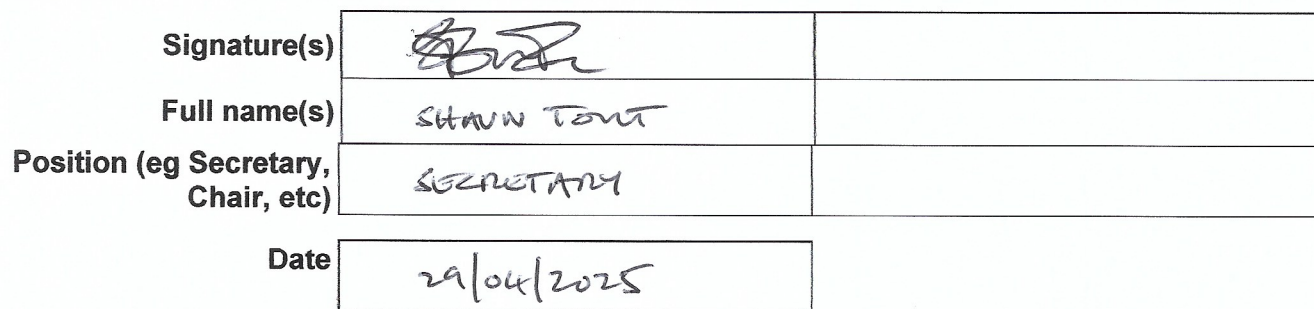 Signature(s)
Full name(s) SHAUN
Position (eg Secretary,
Chair, etc) SECRETARY
Date 29/04/2025